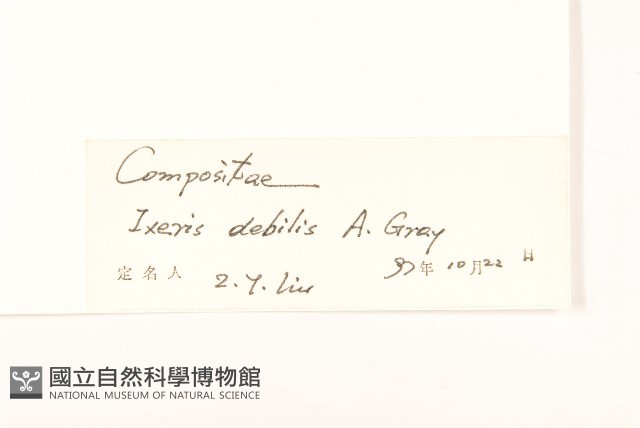 Compositae
Ixeris debilis A. Gray
定名人 Z. Y. Liu 年 10 月 22 日
國立自然科學博物館
NATIONAL MUSEUM OF NATURAL SCIENCE